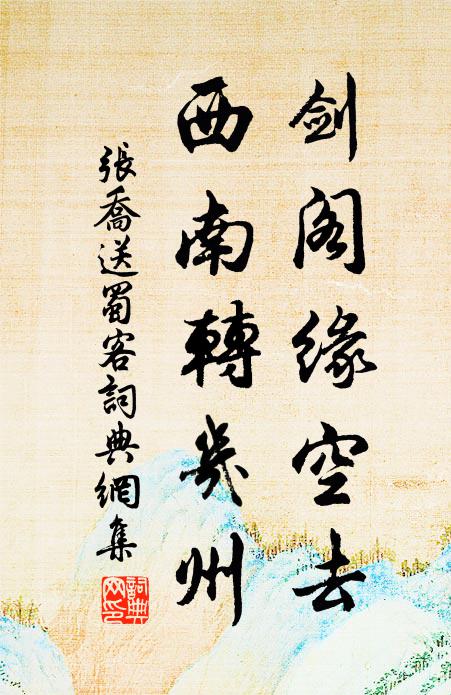 剑阁缘空去
西南轉幾州
張喬送蜀客詞典網集
詞典網印